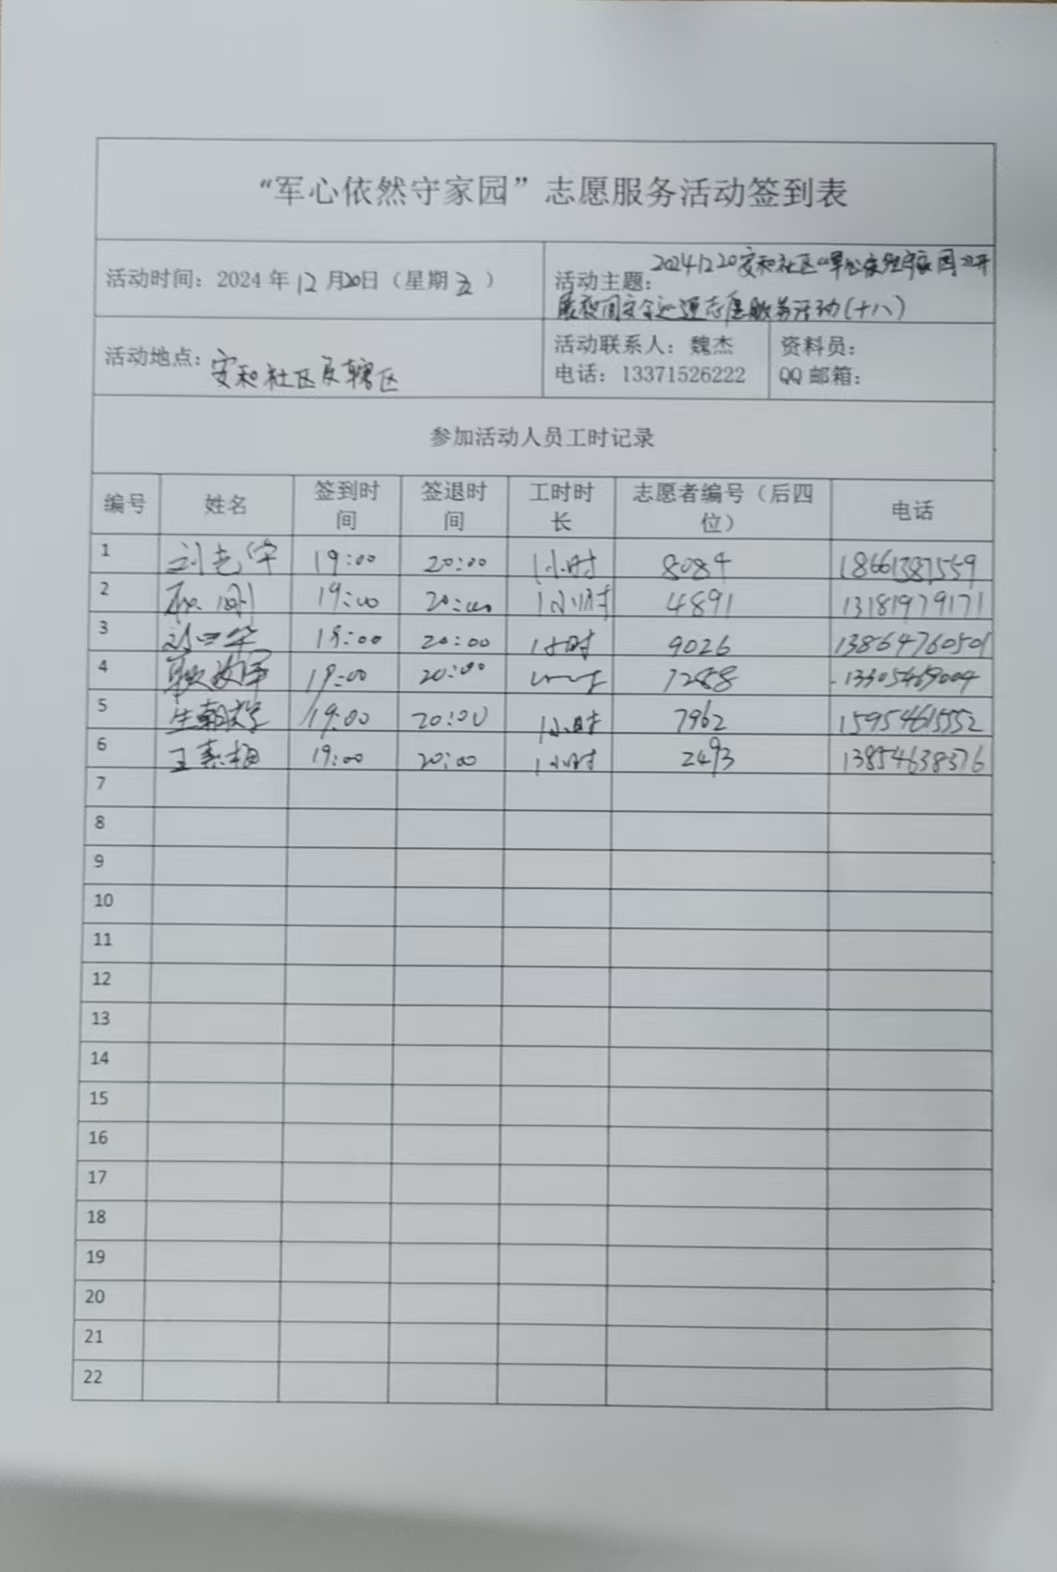 “军心依然守家园”志愿服务活动签到表
活动时间：2024年12月20日（星期五）
活动主题：20241220安和社区“军心依然守家园”开
展夜间安全巡逻志愿服务活动（十八）
活动地点：安和社区及辖区
活动联系人：魏杰
电话：13371526222
资料员：
QQ邮箱：
参加活动人员工时记录
编号 姓名 签到时间 签退时间 工时时长 志愿者编号（后四位） 电话
1 19:00 20:00 1小时 8084 18661387559
2 19:00 20:00 1小时 4891 13181979171
3 19:00 20:00 1小时 9026 13864760501
4 19:00 20:00 7288 13305469004
5 19:00 20:00 1小时 7962 15954615552
6 19:00 20:00 1小时 2493 13854638376
7
8
9
10
11
12
13
14
15
16
17
18
19
20
21
22